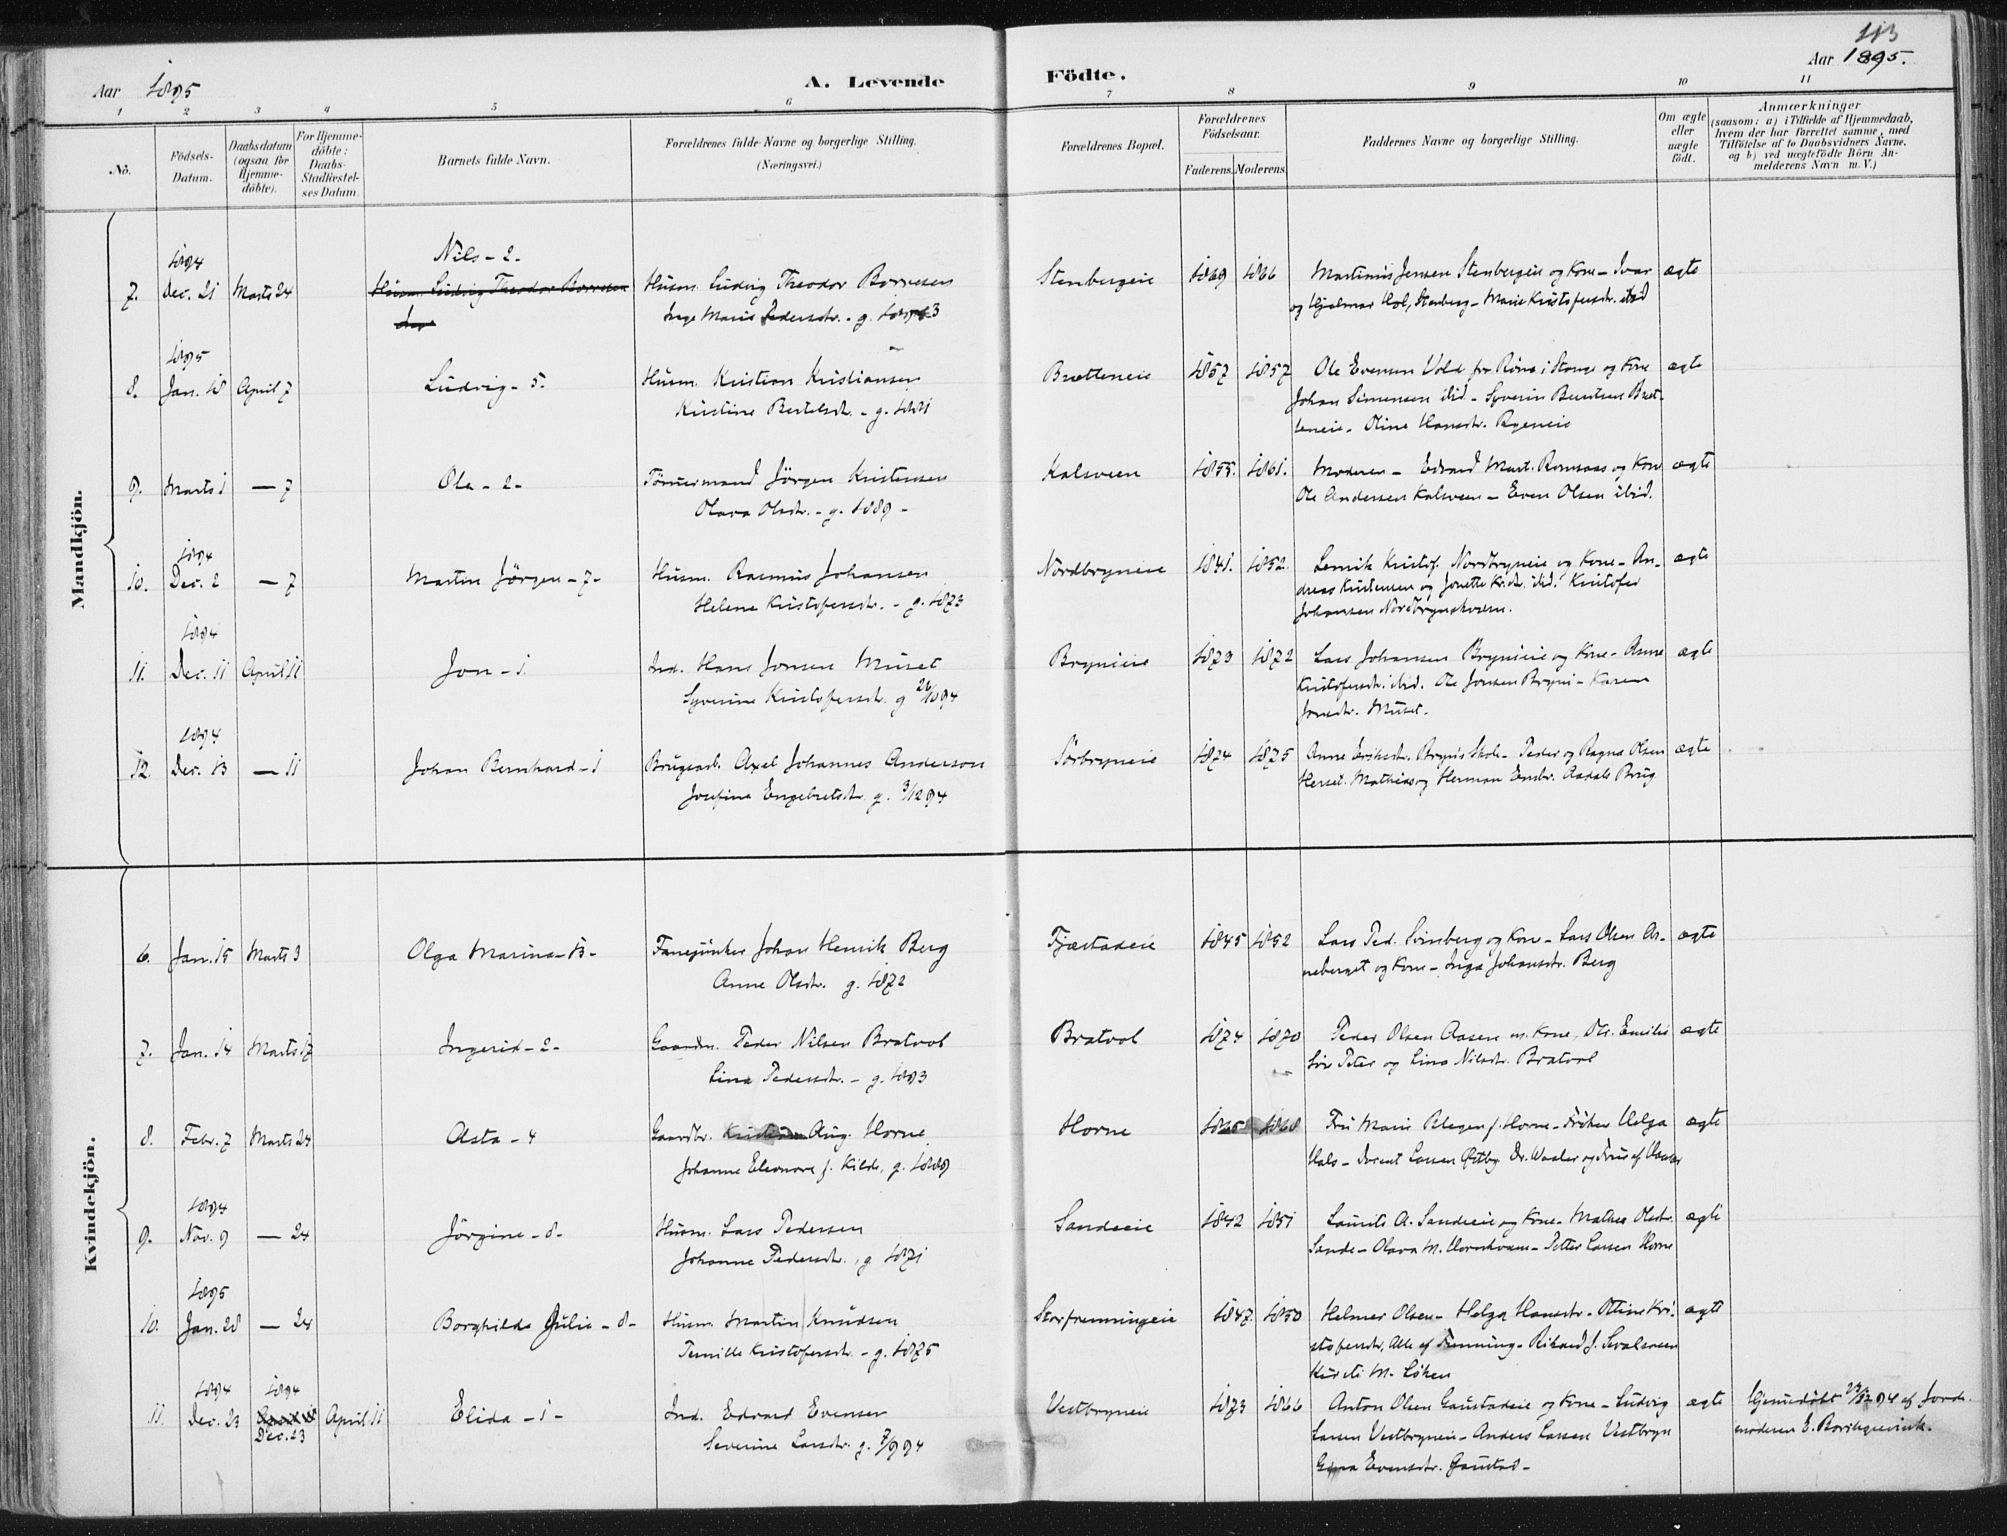 113
Aar 1895
A. Levende Födte.
Aar 1895.
1 2 3 4 5 6 7 8 9 10 11
No.
Födsels-Datum.
Daabsdatum (ogsaa for Hjemme-döbte).
For Hjemme-döbte: Daabs-Stadfæstel-ses Datum
Barnets fulde Navn.
Forældrenes fulde Navne og borgerlige Stilling. (Næringsvei.)
Forældrenes Bopæl.
Forældrenes Födselsaar. Faderens. Moderens.
Faddernes Navne og borgerlige Stilling.
Om ægte eller uægte födt.
Anmærkninger (saasom: a) i Tilfælde af Hjemmedaab, hvem der har forrettet samme, med Tilföielse af to Daabsvidners Navne, og b) ved uægtefödte Börn An-melderens Navn m. V.)
Mandkjön.
1894 Nils - 2 -
7. Dec. 21 Marts 24 Husm. Ludvig Theodor Borresen Husm. Ludvig Theodor Borresen Stenbergeie 1869 1866 Martinus Jensen Stenbergeie og Kone - Ivar ægte
Inge Inge Marie Pedersdtr. - g. 1893 og Hjalmar Hol, Stenberg - Marie Kristofersdtr. ibid
1895
8. Jan. 18 April 7 Ludvig - 5 - Husm. Kristian Kristiansen Brætteneie 1857 1857 Ole Evensen Vold fra Röne i Stange og Kone ægte
Kristine Bertelsdr. - g. 1881 Johan Simensen ibid - Syverin Berntsen Bræt-
teneie - Oline Hansdr. Ryeneie
9. Marts 1 — 7 Ole - 2 - Tömmermand Jörgen Kristensen Kalsveen 1855. 1861. Moderen - Edvard Mart. Romsaas og Kone ægte
Olava Olsdr. - g. 1889 - Ole Andersen Kalsveen - Even Olsen ibid.
1894
10. Dec. 2 — 7 Martin Jörgen - 7 - Husm. Rasmus Johansen Nordbryneie 1841. 1852. Lenrik Kristof. Nordbryneie og Kone - An- ægte
Helene Kristofersdr. - g. 1873 dreas Kristensen og Jonette Kr.dr. ibid. Kristofer
Johansen Nordbrynskvern.
1894
11. Dec. 11 April 11 Jon - 1. Ind. Hans Jonsen Muset Brynieie 1873 1872 Lars Johansen Brynieie og Kone - Anne ægte
Syverine Kristofersdr. g 26/10 94 Kristofersdr. ibid. Ole Jonsen Bryni - Karen
Jonsdr. Muset.
1894
12. Dec. 13 — 11 Johan Bernhard - 1 Brugsarb. Axel Johannes Anderson Sörbryneie 1874 1875 Anne Eriksdr. Bryni Skole - Peder og Ragna Olsen ægte
Josefine Engebretsdr g. 3/12 94 Herset. Mathias og Herman Embr. Aadals Brug
Kvindekjön.
6. Jan. 15 Marts 3 Olga Marina - 13 - Fanejunker Johan Henrik Berg Fjæstadeie 1845 1852 Lars Ped. Svinberg og Kone - Lars Olsen As- ægte
Anne Olsdr. g. 1872 neberget og Kone - Inga Johansdr. Berg
7. Jan. 14 Marts 17 Ingerid - 2 - Gaardm. Peder Nilsen Bratvol Bratvol 1874 1870 Peder Olsen Aasen m. Kone, Dtr. Emilie ægte
Lina Pedersdr. - g. 1893 Sön Peter og Lina Nilsdr. Bratvol
8. Febr. 7 Marts 24 Asta - 4 Gaardbr. Kristian Aug. Horne Horne 1865 1868 Fru Marie Blegen f. Horne - Fröken Helga ægte
Johanne Eleonore f. Kilde, g. 1889 Hals - Docent Larsen Østby Dr. Waaler og Frue af Hamar
1894
9. Nov. 9 — 24 Jörgine - 8 - Husm. Lars Pedersen Sandeeie 1842 1851 Laurits A. Sandeeie og Kone - Mathea Olsdr. ægte
Johanne Pedersdr., g 1871 Sande - Olava M. Hornskvern - Petter Larsen Horne
1895
10. Jan. 28 — 24 Borghilda Julie - 8 - Husm. Martin Knudsen Storfremmingeie 1847 1850 Helmer Olsen - Helga Hansdr. - Ottine Kri- ægte
Pernille Kristofersdr. - g. 1875 stofersdr, alle af Fremming - Rikard J. Svalsveen
Kirsti M. Löken
1894 1894
11. Dec. 23 Dec. 23 April 11 Elida - 1 - Ind. Edvard Evensen Vestbryneie 1873 1866 Anton Olsen Gaustadeie og Kone - Ludvig ægte Hjemmedöbt 23/12 94 af Jorde-
Severine Larsdr. g. 7/9 94 Larsen Vestbryneie - Anders Larsen Vestbryn moderen
Evensdr. Gaustad -